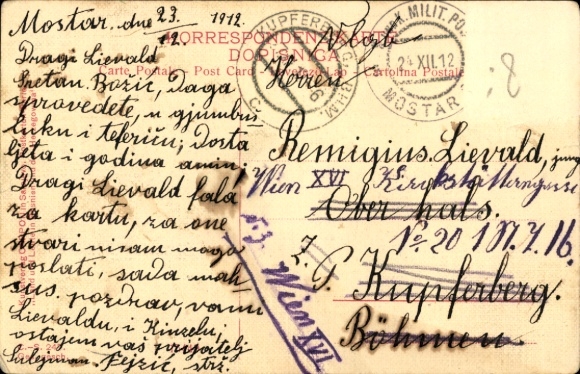 Mostar, dne 23/12. 1912.
Dragi Lievald
Sretan. Božić, Daga
sprovedete, u gjumbuš
luku i teferiču; Dosta
ljeta i godina amin!
Dragi Lievald fala
za kartu, za one
stvari nisam mogo
poslati, sada mah
sus. pozdrav, vamu
Lievaldu, i Kinzelu,
ostajem vaš prijatelj
Sulejman. Fejzić, strž.
KORRESPONDENZKARTE
DOPISNICA
Carte Postale Post Card
Cartolina Postale
K.u.K. MILIT. POST
24 XII. 12
MOSTAR
KUPFERBERG
Herrn
Remigius Lievald, jung
Ober hals.
Z. P. Kupferberg.
Böhmen.
Wien XVI
No 20 I St. T. 16.
Wien XVI
8